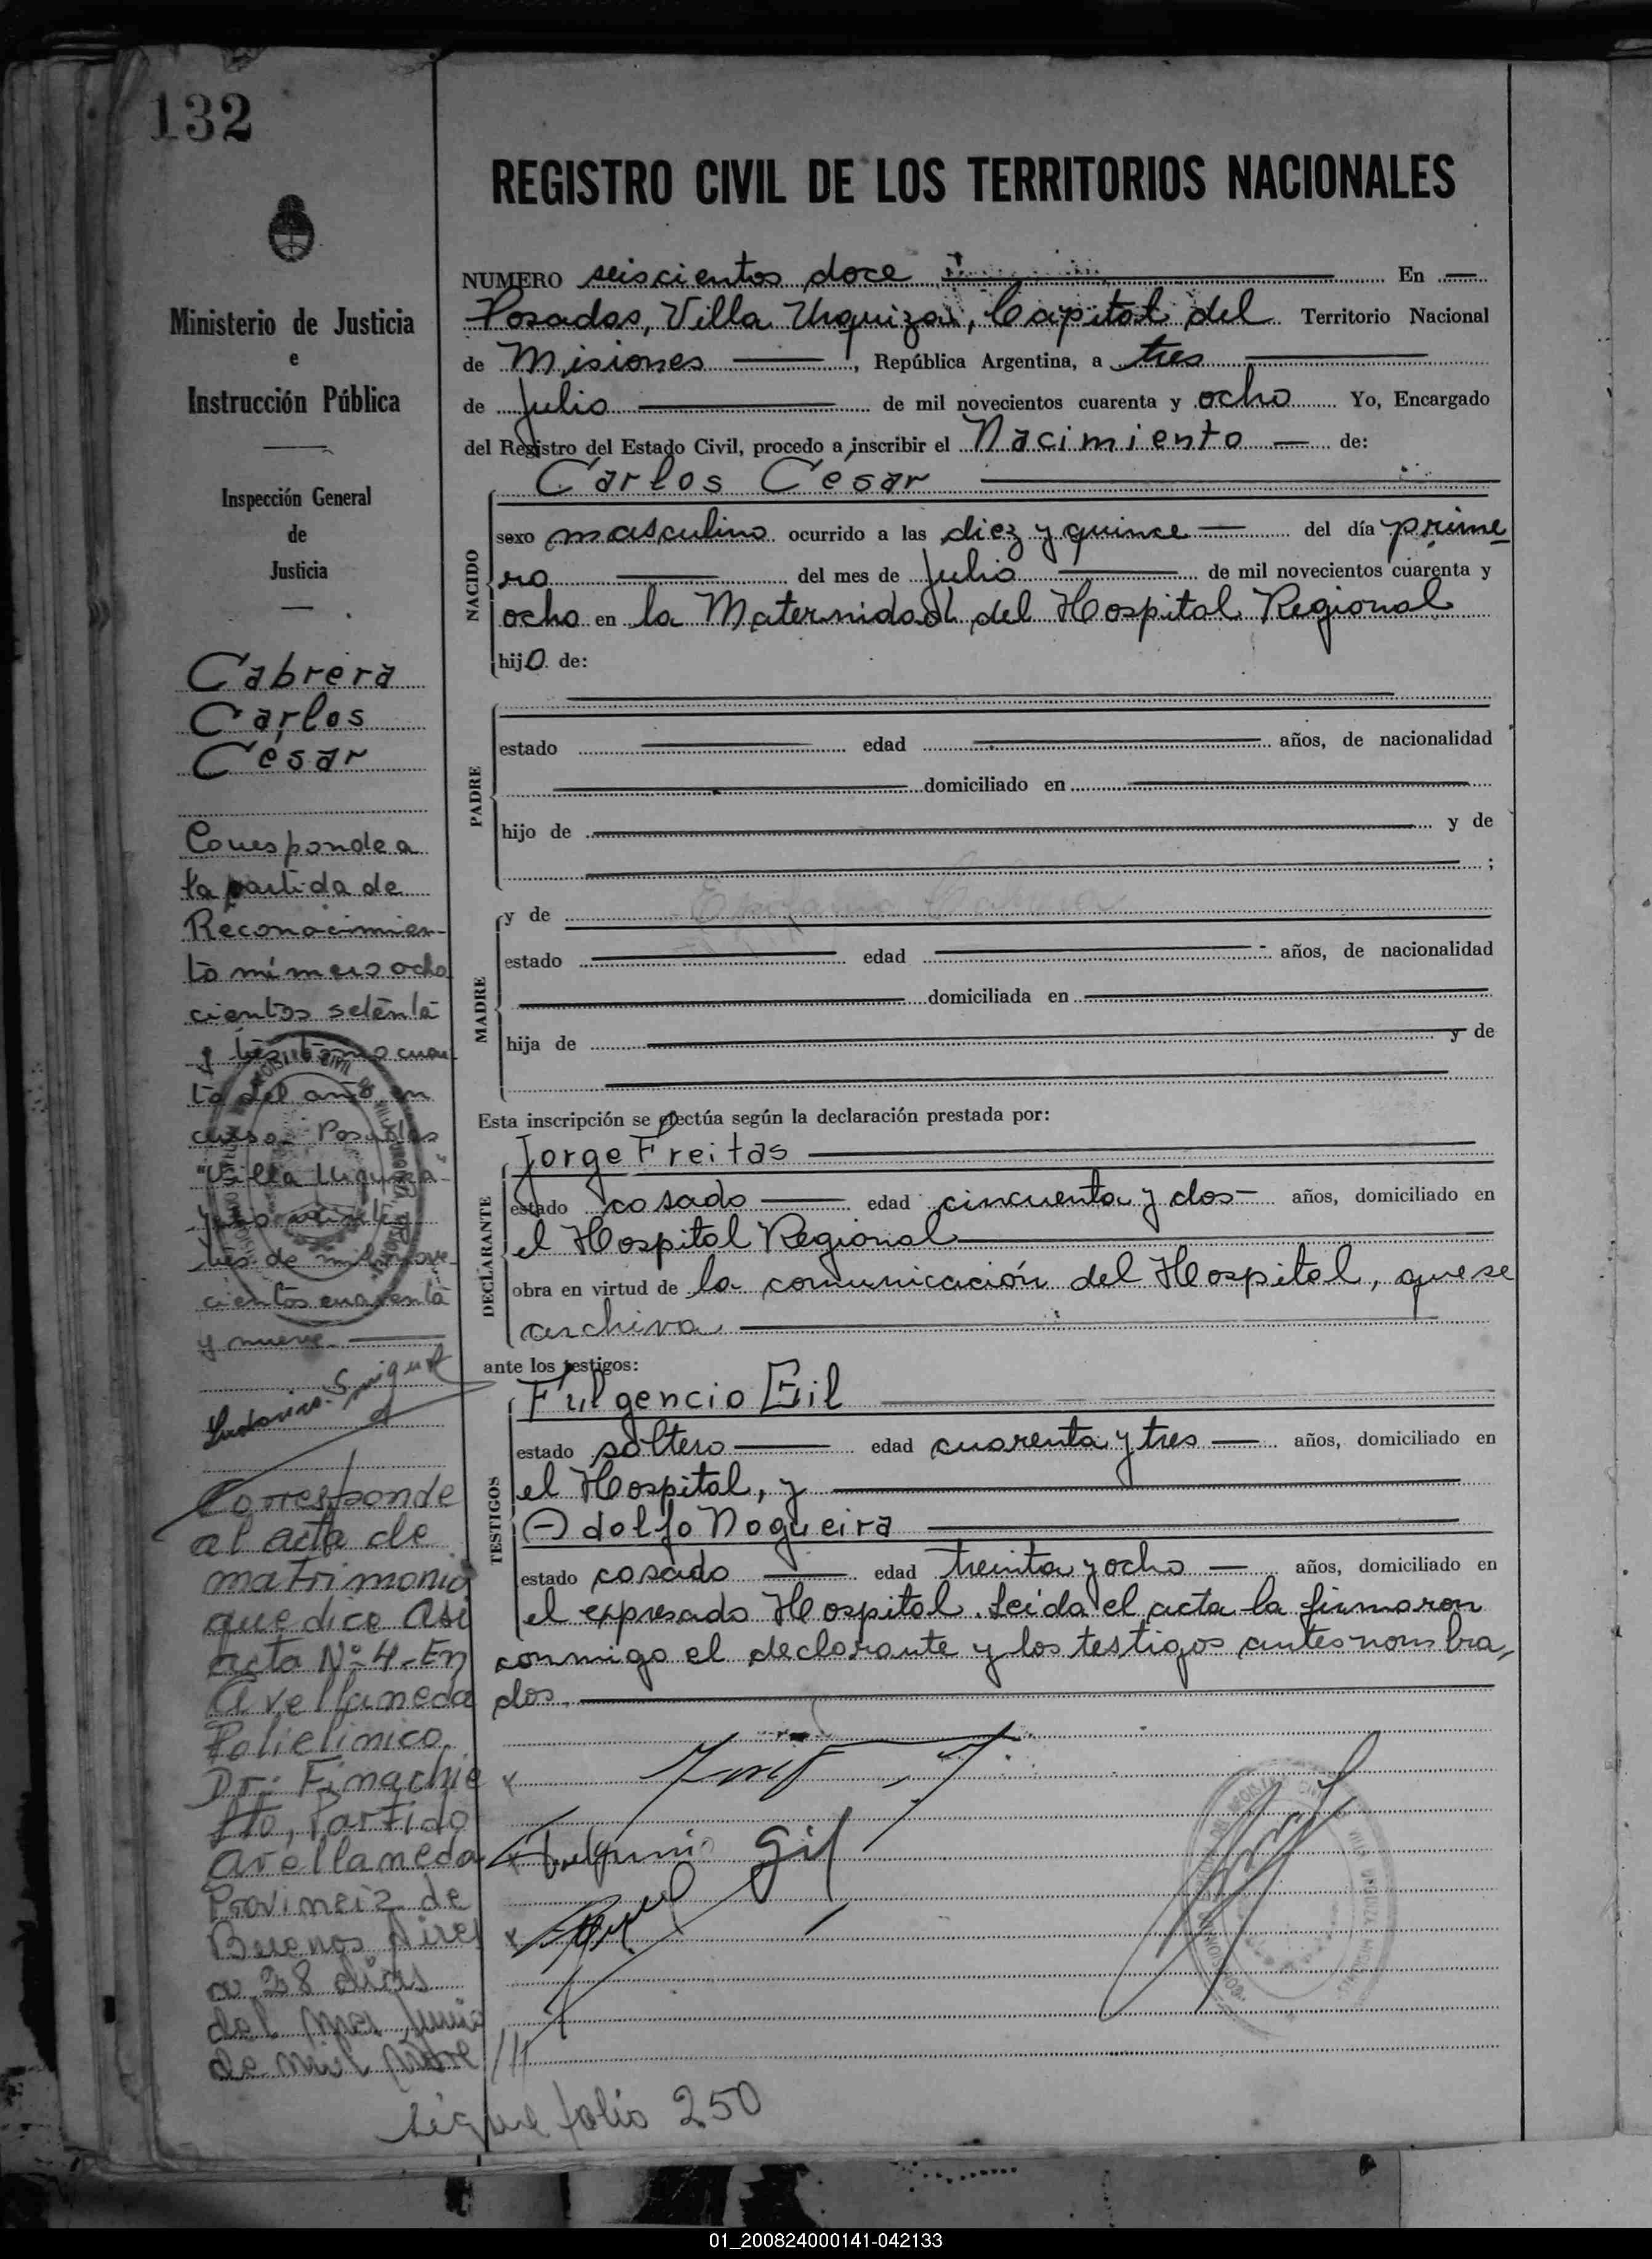 132
Ministerio de Justicia
e
Instrucción Pública
Inspección General
de
Justicia
Cabrera
Carlos
César
Corresponde a
la partida de
Reconocimien-
to número ocho
cientos setenta
y tres tomo cuar
to del año en
curso. Posadas
"Villa Urquiza"
tres de mil nove-
cientos cuarenta
y nueve.
Corresponde
al acta de
matrimonio
que dice Asi
acta Nº 4-En
Avellaneda
Policlinico
Dr: Finochie
tto, Partido
Avellaneda
Provincia de
Buenos Aires
a 28 dias
del mes Junio
de mil nove ///
sigue folio 250
REGISTRO CIVIL DE LOS TERRITORIOS NACIONALES
NUMERO seiscientos doce En
Posadas, Villa Urquiza, Capital del Territorio Nacional
de Misiones, República Argentina, a tres
de Julio de mil novecientos cuarenta y ocho Yo, Encargado
del Registro del Estado Civil, procedo a inscribir el Nacimiento de:
Carlos César
NACIDO
sexo masculino ocurrido a las diez y quince del día prime
ro del mes de Julio de mil novecientos cuarenta y
ocho en la Maternidad del Hospital Regional
hijo de:
PADRE
estado edad años, de nacionalidad
domiciliado en
hijo de y de
;
MADRE
y de
estado edad años, de nacionalidad
domiciliada en
hija de y de
Esta inscripción se efectúa según la declaración prestada por:
DECLARANTE
Jorge Freitas
estado casado edad cincuenta y dos años, domiciliado en
el Hospital Regional
obra en virtud de la comunicación del Hospital, que se
archiva
ante los testigos:
TESTIGOS
Fulgencio Gil
estado soltero edad cuarenta y tres años, domiciliado en
el Hospital, y
Adolfo Nogueira
estado casado edad treinta y ocho años, domiciliado en
el expresado Hospital. Leida el acta la firmaron
conmigo el declarante y los testigos antes nombra,
dos.
Fulgencio Gil
01_200824000141-042133